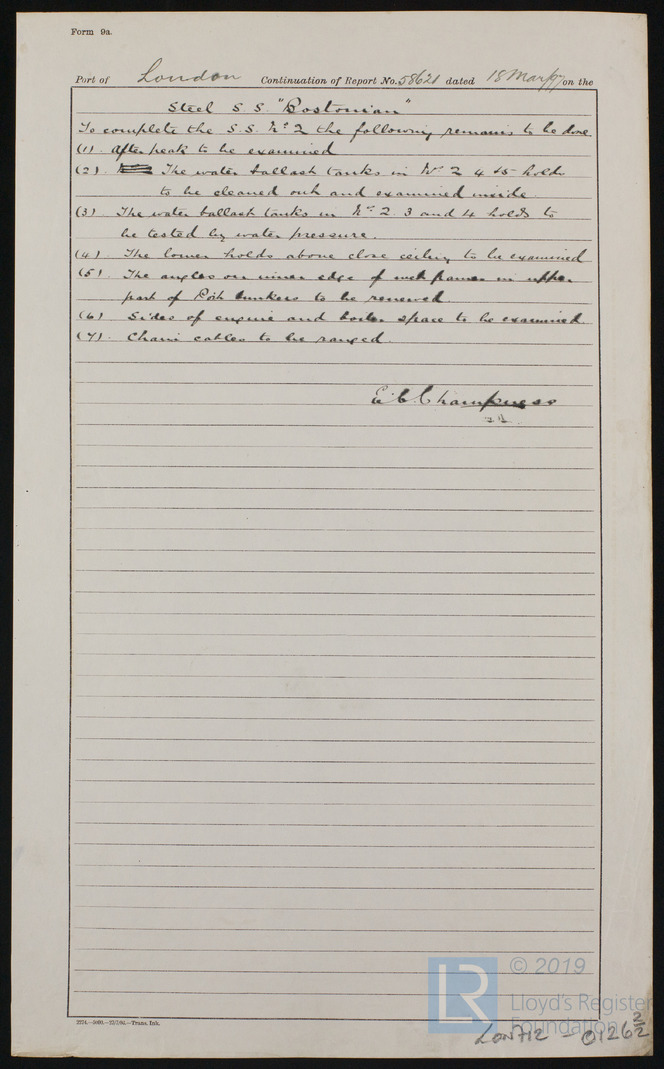 Form 9a.
Port of London Continuation of Report No. 58621 dated 18 Mar/97 on the
Steel S.S. "Bostonian"
To complete the S.S. No 2 the following remains to be done
(1). After peak to be examined
(2). The water ballast tanks in No 2 4 & 5 holds
to be cleaned out and examined inside.
(3). The water ballast tanks in No. 2. 3 and 4 holds to
be tested by water pressure.
(4). The lower holds above close ceiling to be examined
(5). The angles on inner edge of web frames in upper
part of Port bunkers to be renewed.
(6). Sides of engine and boiler space to be examined
(7). Chain cables to be ranged.
E. C. Champness
© 2019
Lloyd's Register
Foundation
LON712 - 0126 2/2